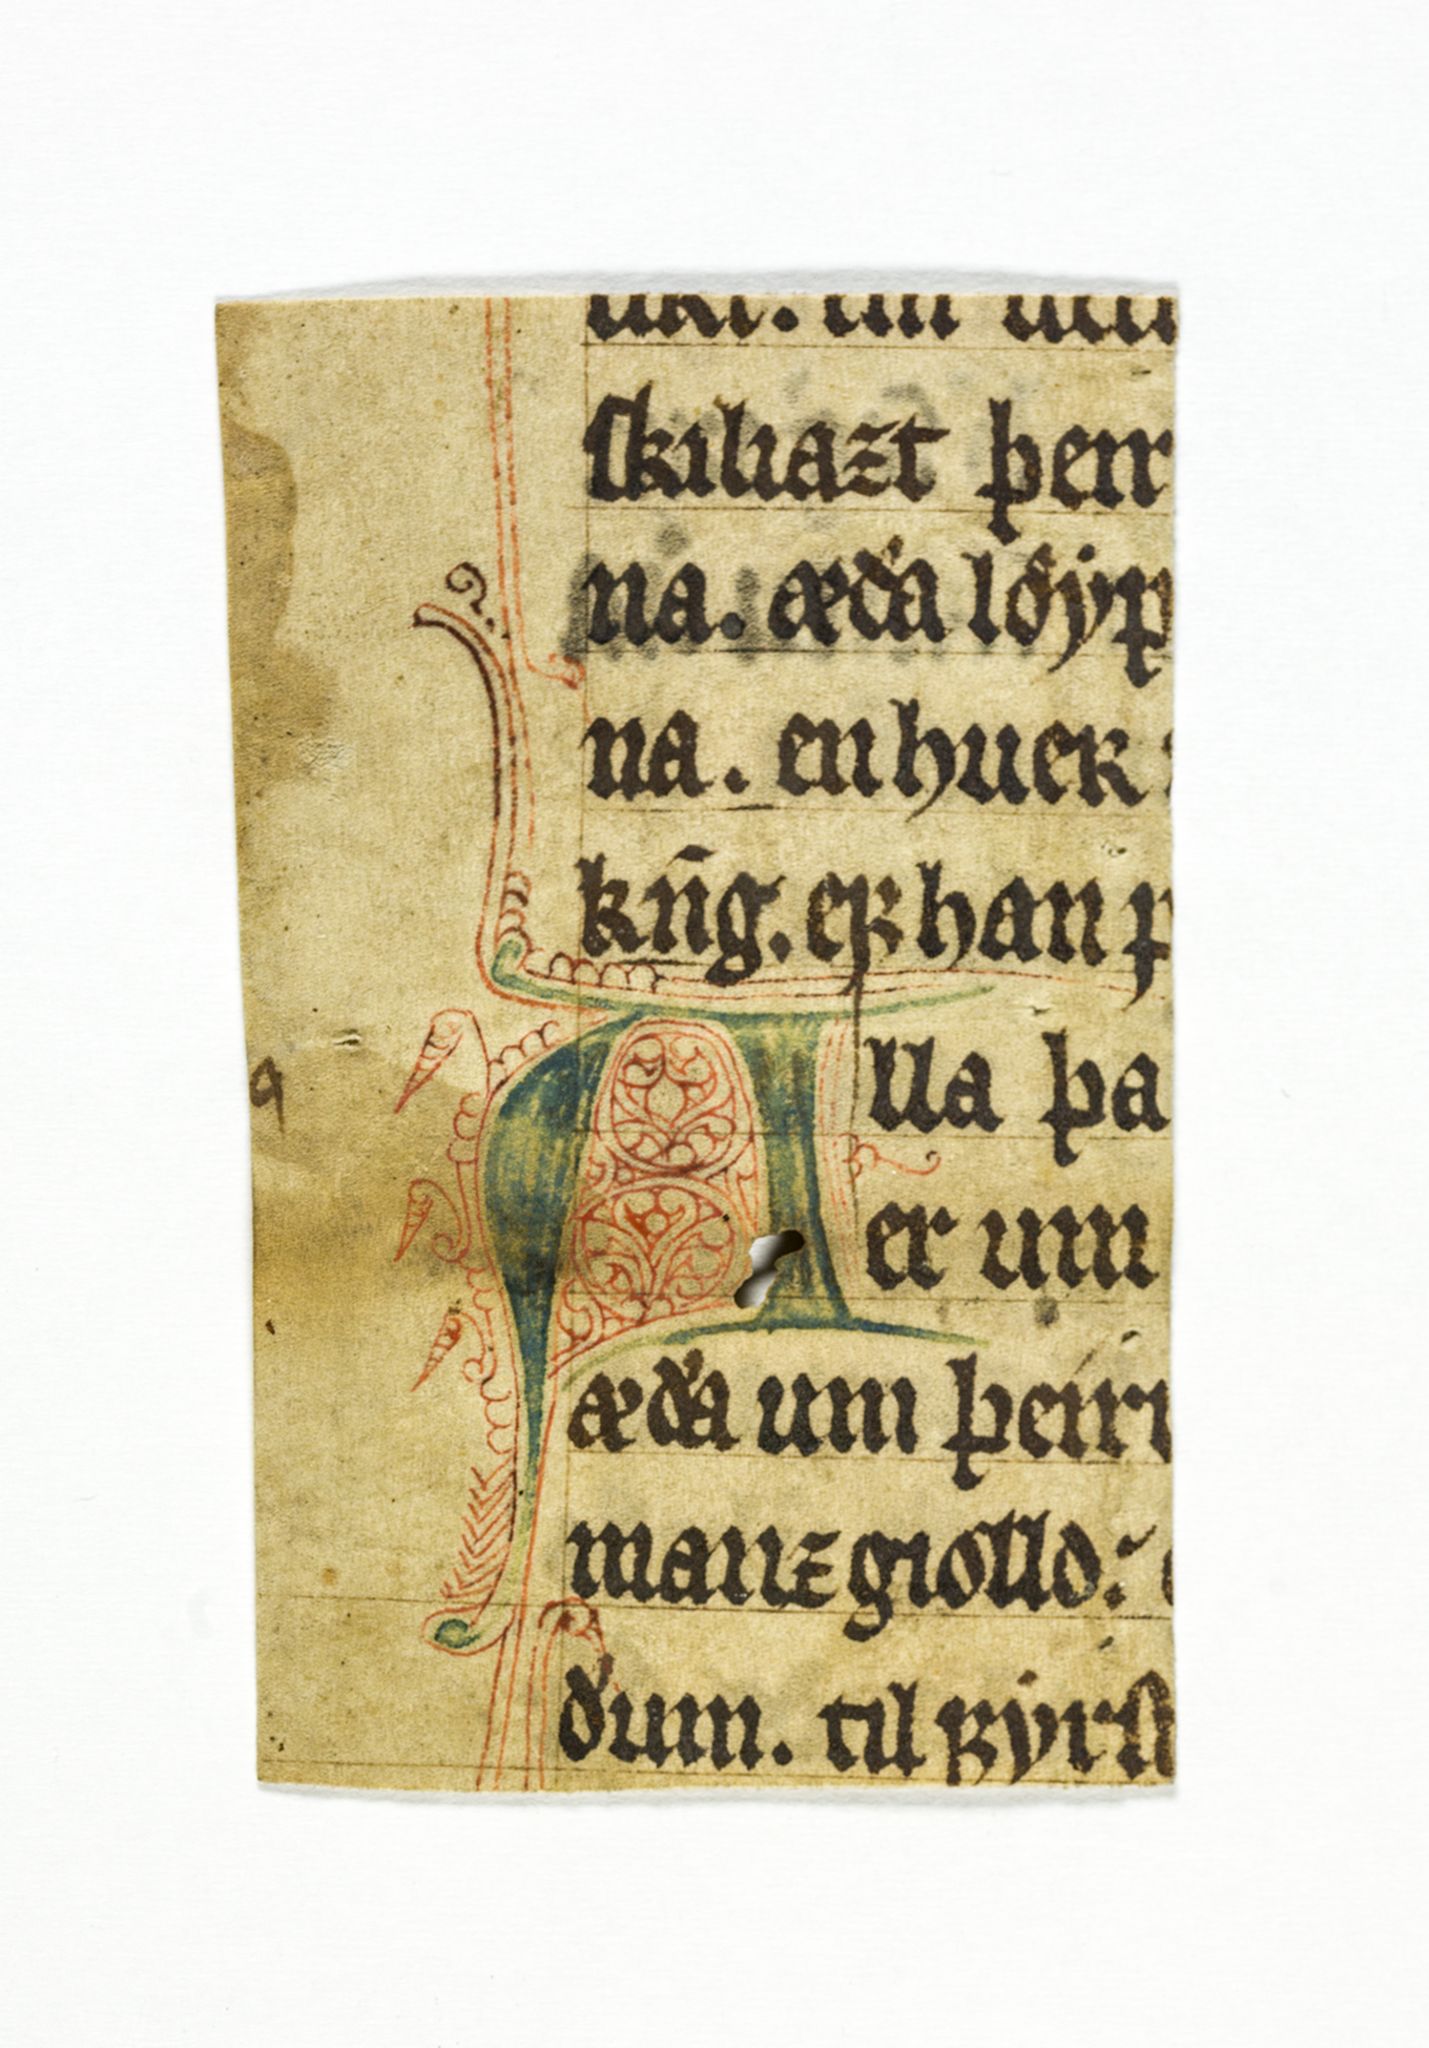 ſkiliazt þeir
na. æða löyp
na. en huer
kn̄g. er han
Alla þa
er um
æða um þeirr
mannz giolld:
ðum. til kyrſ